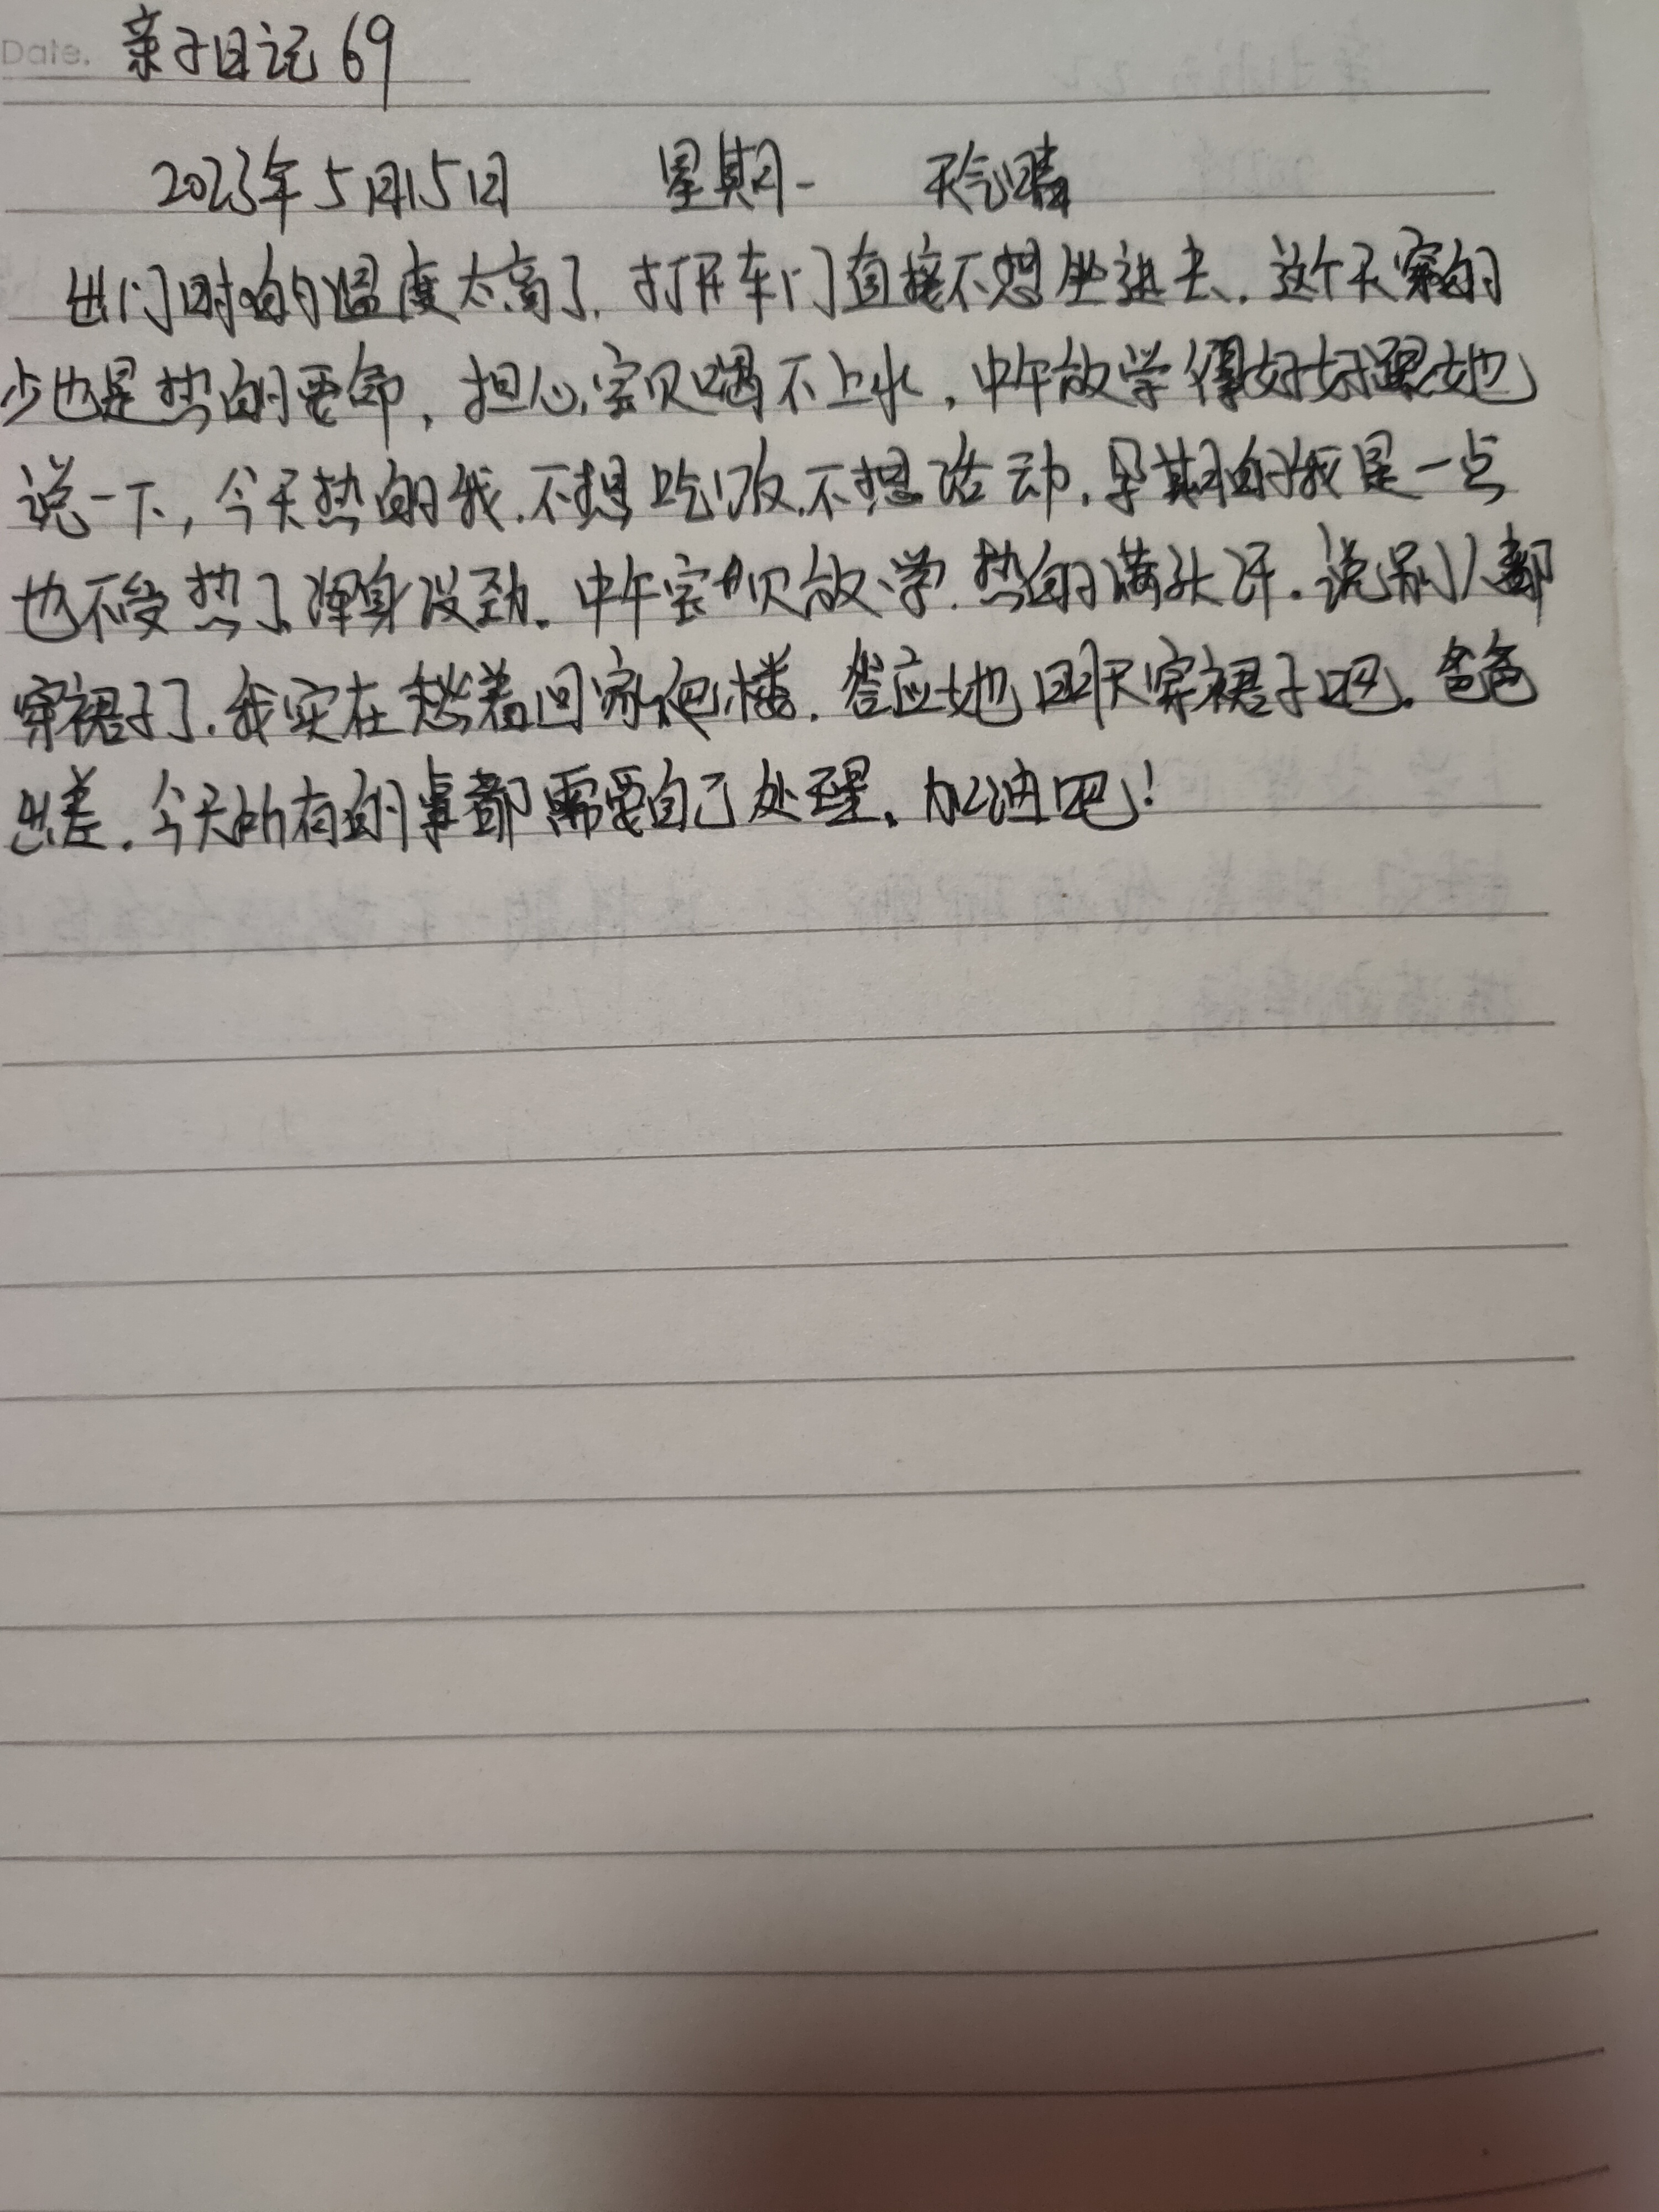 Date. 亲子日记 69
2023年5月15日 星期一 天气晴
出门时的温度太高了. 打开车门直接不想坐进去. 这个天穿的
少也是热的要命, 担心宝贝喝不上水, 中午放学得好好跟她
说一下, 今天热的我. 不想吃饭. 不想活动. 孕期的我是一点
也不受热了. 浑身没劲. 中午宝贝放学. 热的满头汗. 说别人都
穿裙子了. 我实在愁着回家爬楼. 答应她明天穿裙子吧. 爸爸
出差. 今天所有的事都需要自己处理. 加油吧!